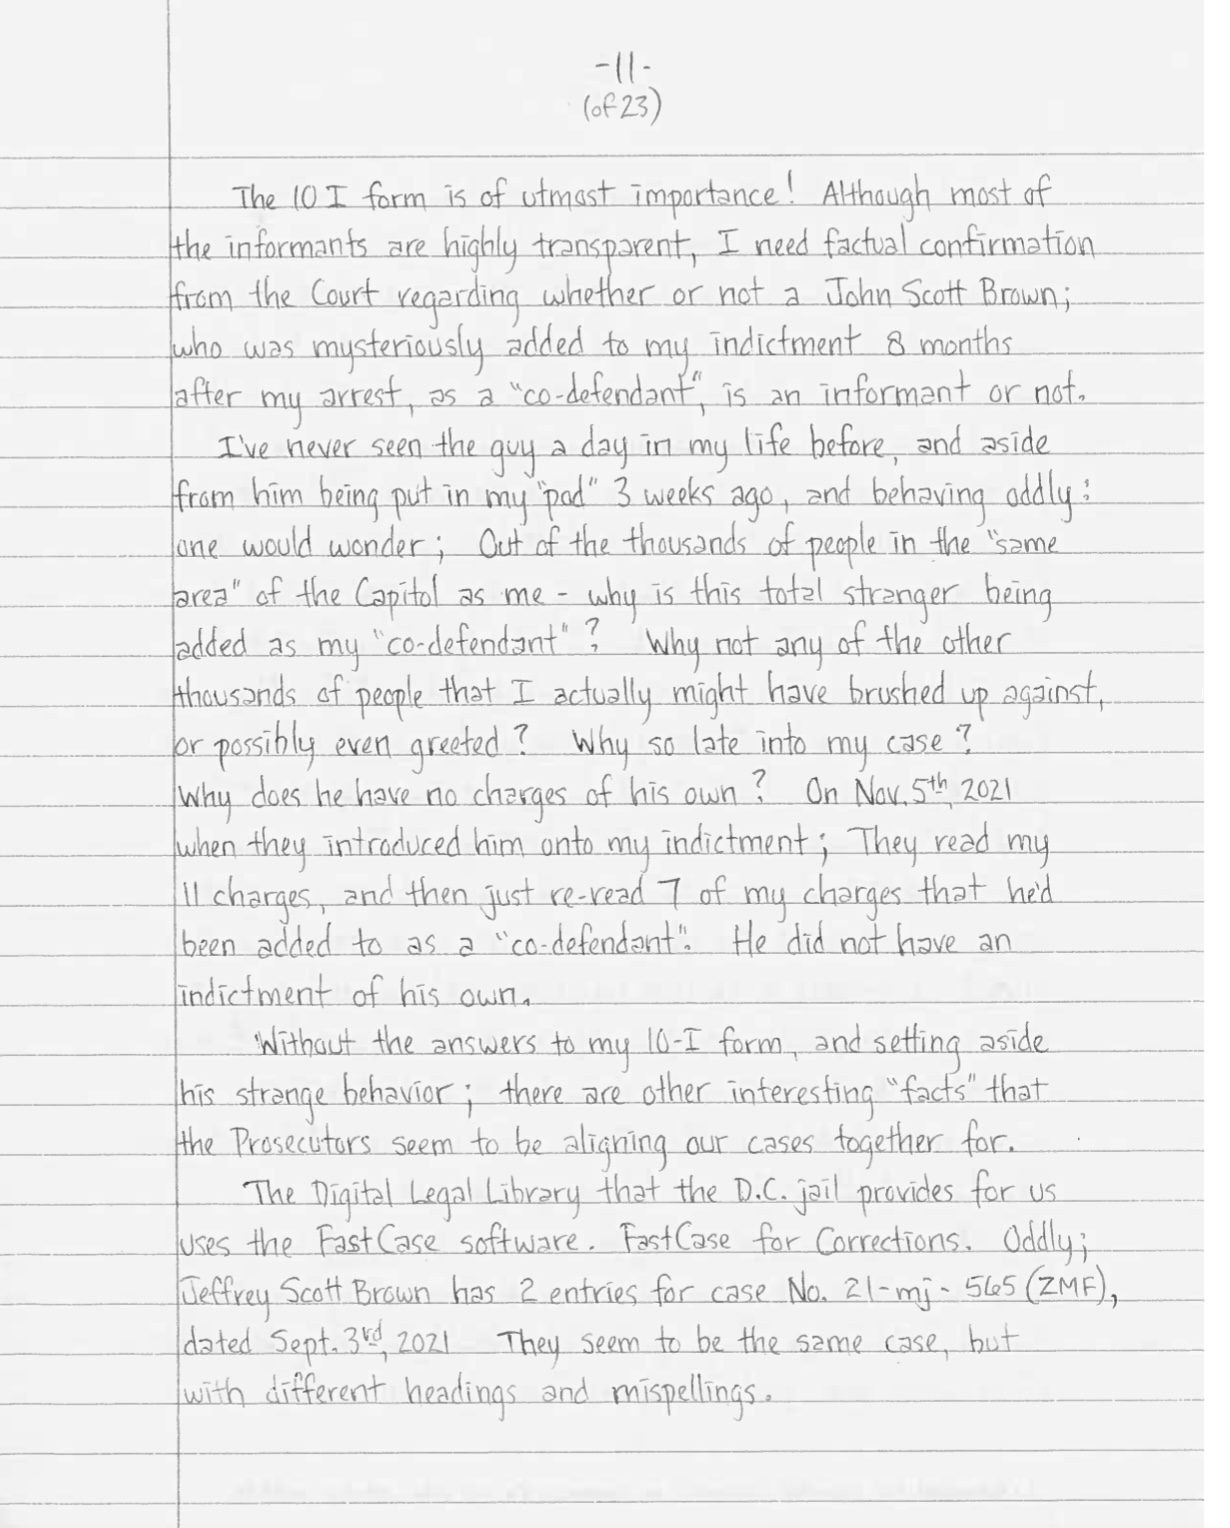 -11-
(of 23)
The 10 I form is of utmost importance! Although most of
the informants are highly transparent, I need factual confirmation
from the Court regarding whether or not a John Scott Brown;
who was mysteriously added to my indictment 8 months
after my arrest, as a "co-defendant", is an informant or not.
I've never seen the guy a day in my life before, and aside
from him being put in my "pod" 3 weeks ago, and behaving oddly;
one would wonder; Out of the thousands of people in the "same
area" of the Capitol as me - why is this total stranger being
added as my "co-defendant"? Why not any of the other
thousands of people that I actually might have brushed up against,
or possibly even greeted? Why so late into my case?
Why does he have no charges of his own? On Nov. 5th, 2021
when they introduced him onto my indictment; They read my
11 charges, and then just re-read 7 of my charges that he'd
been added to as a "co-defendant". He did not have an
indictment of his own.
Without the answers to my 10-I form, and setting aside
his strange behavior; there are other interesting "facts" that
the Prosecutors seem to be aligning our cases together for.
The Digital Legal Library that the D.C. jail provides for us
uses the FastCase software. FastCase for Corrections. Oddly;
Jeffrey Scott Brown has 2 entries for case No. 21-mj-565 (ZMF),
dated Sept. 3rd, 2021 They seem to be the same case, but
with different headings and mispellings.